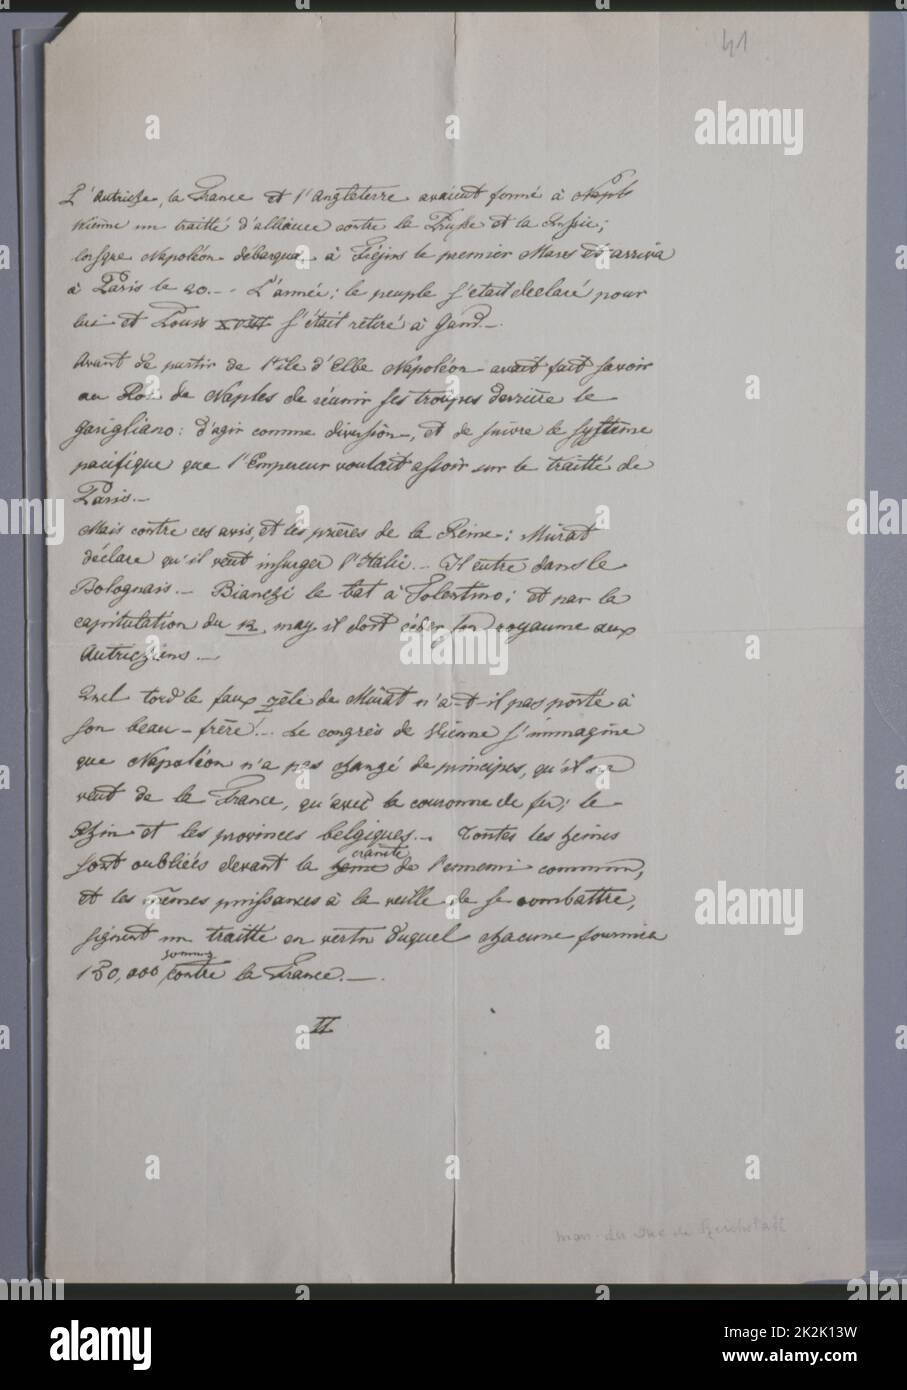 41
L'Autriche, la France et l'Angleterre avaient formé à Napl
Vienne un traitté d'alliance contre la Prusse et la Russie;
lorsque Napoléon débarqua à Fréjus le premier Mars et arriva
à Paris le 20.-- L'année; le peuple s'était declaré pour
lui et Louis XVIII s'était rétiré à Gand.-
Avant de partir de l'ile d'Elbe Napoléon avait fait savoir
au Roi de Naples de réunir ses troupes derrière le
Garigliano: d'agir comme diversion, et de suivre le système
pacifique que l'Empereur voulait assoir sur le traitté de
Paris.-
Mais contre ces avis, et les prières de la Reine: Murat
déclare qu'il veut insurger l'Italie.- Il entre dans le
Bolognais.- Bianchi le bat à Tolentino; et par la
capitulation du may il doit céder son royaume aux
Autrichiens.-
Quel tord le faux zèle de Murat n'a-t-il pas porté à
son beau-frère!- Le congrès de Vienne s'immagine
que Napoléon n'a pas changé de principes, qu'il ne
veut de la France, qu'avec la couronne de fer; le
Rhin et les provinces belgiques.- Toutes les haines
crainte
sont oubliées devant la de l'ennemi commun,
et les mêmes puissances à la veille de se combattre,
signent un traitté en vertu duquel chacune fournira
hommes
150,000 contre la France.-
II
man. du Duc de Reichstadt
alamy
Image ID: 2K2K13W
www.alamy.com